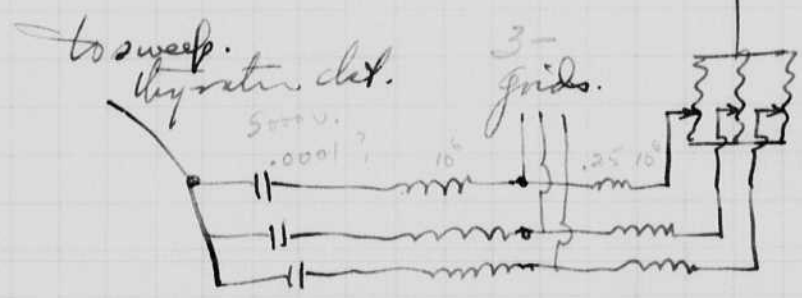 to sweep.
thyratron ckt.
3-
grids.
5000 v.
.0001 ?
10⁶
.25 10⁶